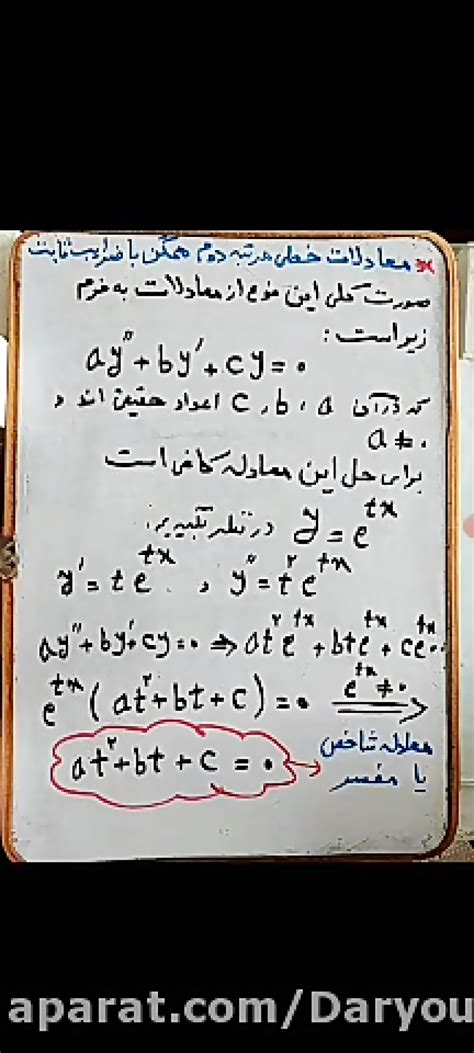 * معادلات خطی مرتبه دوم همگن با ضرایب ثابت
صورت کلی این نوع از معادلات به فرم
زیر است:
ay″ + by′ + cy = ۰
که در آن a ، b ، c اعداد حقیقی اند و
a ≠ ۰
برای حل این معادله کافی است
y = e^{tx} در نظر بگیریم.
y′ = te^{tx} , y″ = t^۲ e^{tx}
ay″ + by′ + cy = ۰ ⇒ at^۲ e^{tx} + bte^{tx} + ce^{tx} = ۰
e^{tx} (at^۲ + bt + c) = ۰ e^{tx} ≠ ۰ ⟹
at^۲ + bt + c = ۰ → معادله شاخص
یا مفسر
aparat.com/Daryou